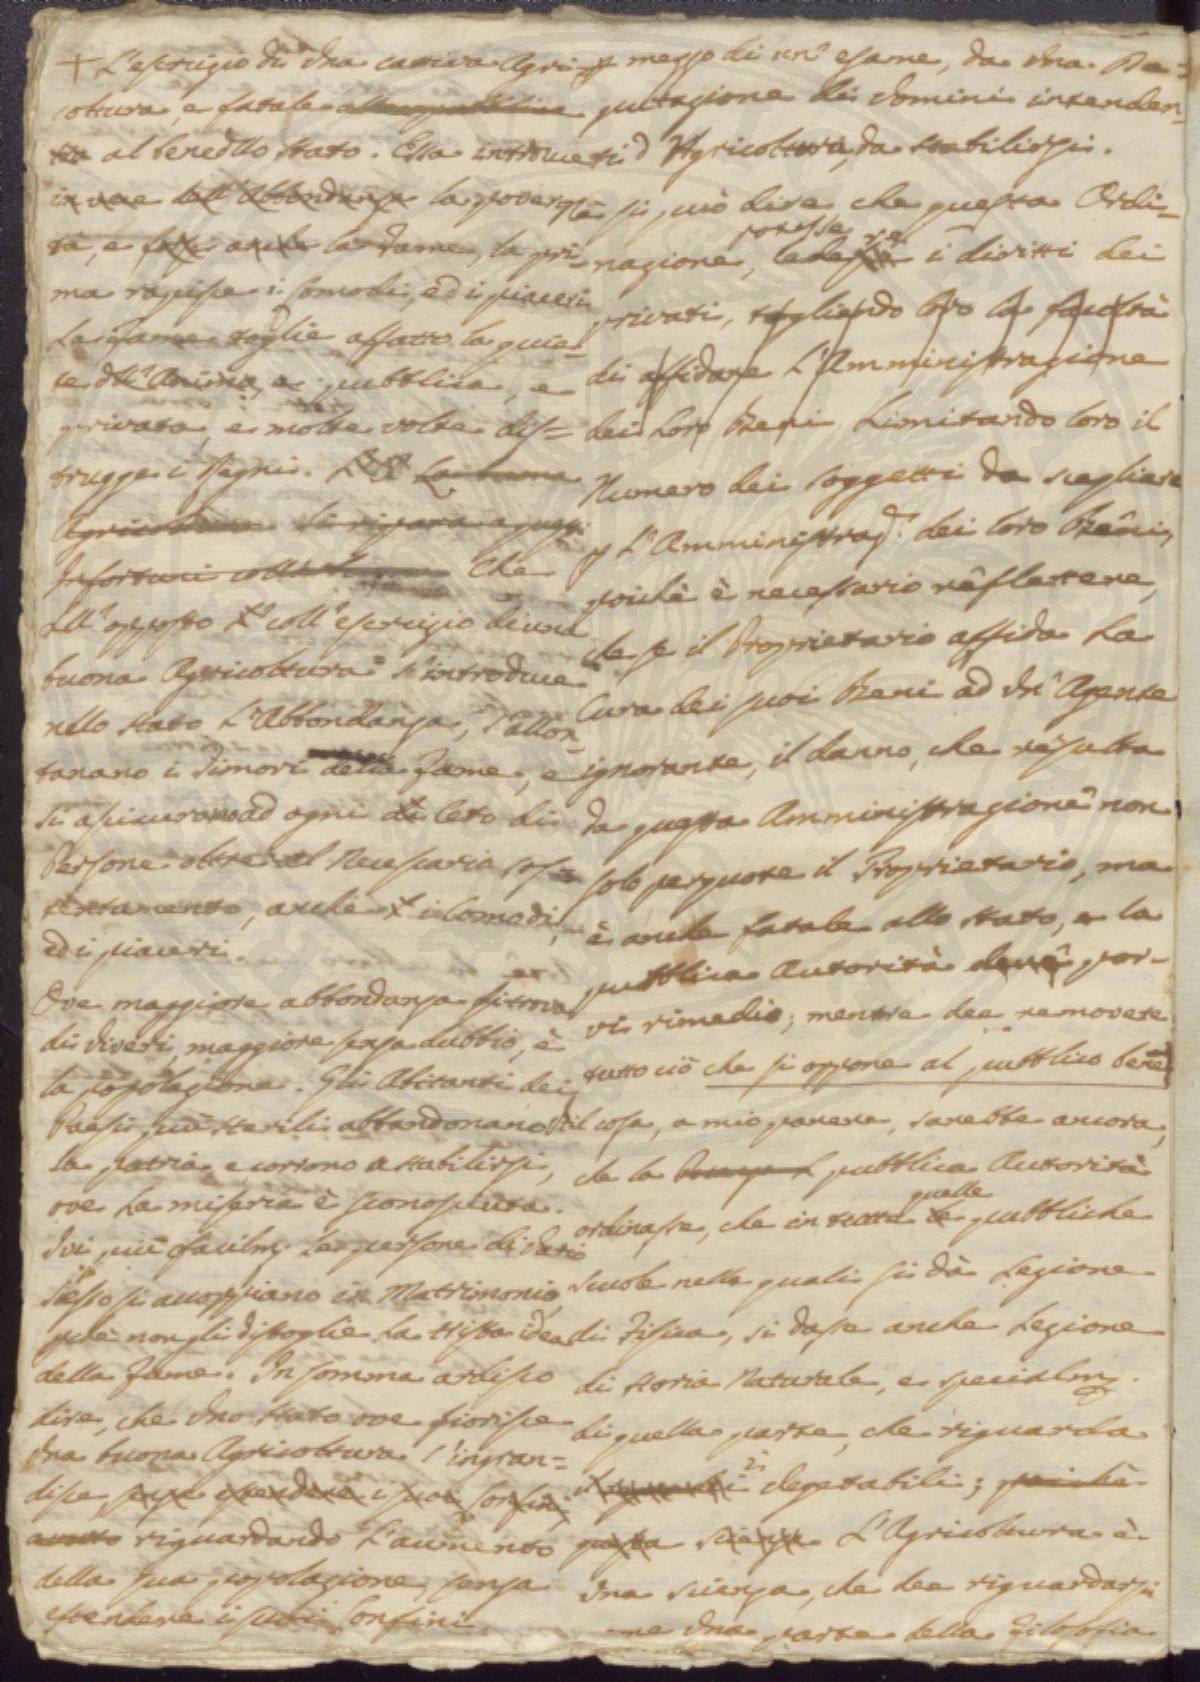 + L'esercizio di una cattiva Agri-
coltura, e fatale alla pubblica
tta al bene dello stato. Essa introduce
in vece dell'Abbondanza la pover-
tà, e forse anche la Fame, la pri-
ma rapisce i Comodi, ed i piaceri
La Fame toglie affatto la quie-
te dell'Anima, e pubblica, e
privata, e molte volte dis=
trugge i Regni. La buona
Agricoltura Si ripara a questi
Infortuni che
All'opposto coll'esercizio di una
buona Agricoltura s'introduce
nello stato L'Abbondanza, s'allon-
tanano i Timori della Fame, e
si assicurano ad ogni Ceto di
Persone oltre al Necessario sos=
tentamento, anche i Comodi,
ed i piaceri.
Ove maggiore abbondanza si trova
di viveri, maggiore senza dubbio, è
la popolazione. Gli Abitanti dei
Paesi più sterili abbandonano
la patria, e corrono a stabilirsi,
ove La miseria è sconosciuta.
Ivi più facilm. Le persone di vario
Sesso si accoppiano in Matrimonio,
che non gli distoglie La trista idea
della Fame. In somma ardisco
dire, che uno stato ove fiorisce
una buona Agricoltura s'ingran=
disce, senza estendere i suoi Confini,
riguardando L'aumento
della sua popolazione, senza
estendere i suoi Confini
p mezzo di un'esame, da una De=
putazione di Uomini intenden-
ti d'Agricoltura, da stabilirsi.
Nè si può dire che questa Ordi-
nazione, potesse ledere i diritti dei
privati, togliendo loro la facoltà
di affidare L'Amministrazione
dei Loro Beni, Limitando loro il
Numero dei soggetti da scegliere
p L'Amministraz. dei loro Beni,
poichè è necessario reflettere,
che se il Proprietario affida La
Cura dei suoi Beni ad un'Agente
ignorante, il danno, che resulta
da questa Amministrazione non
solo perquote il Proprietario, ma
è anche fatale allo stato, e la
pubblica Autorità deve por-
vi rimedio; mentre dee removere
tutto ciò che si oppone al pubblico bene
Util cosa, a mio parere, sarebbe ancora,
che la pubblica Autorità
ordinasse, che in tutte quelle pubbliche
scuole nelle quali si dà Lezione
di Fisica, si dasse anche Lezione
di storia Naturale, e specialm.
di quella parte, che riguarda
i vegetabili; poichè
questa scienza L'Agricoltura è
una scienza, che dee riguardarsi
me una parte della Filosofia